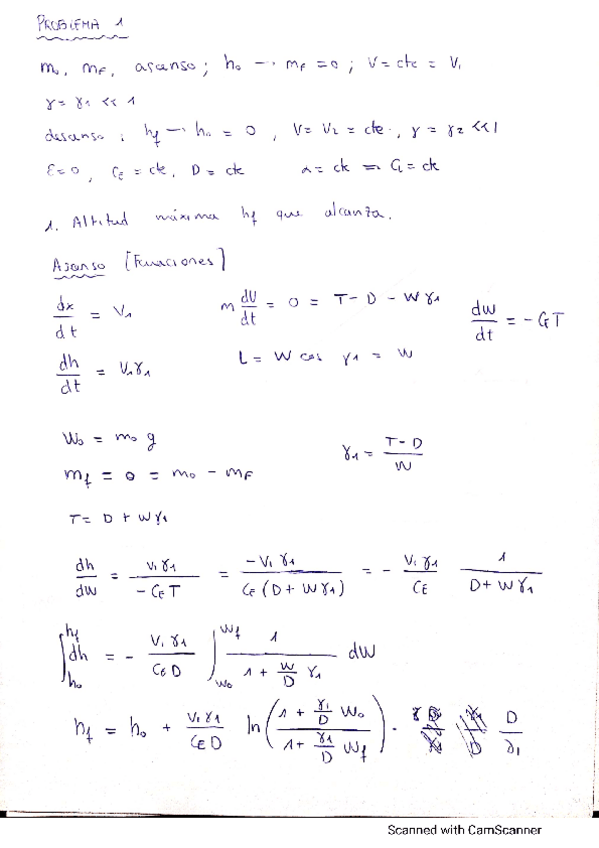 PROBLEMA 1
m₀, m_F, ascenso; h₀ → m_F = 0; V = cte = V₁
γ = γ₁ << 1
descenso: h_f → h₀ = 0, V = V₂ = cte., γ = γ₂ << 1
ε = 0, C_E = cte, D = cte α = ck ⇒ C_L = ck
1. Altitud máxima h_f que alcanza.
Ascenso [Ecuaciones]
dx/dt = V₁ m dV/dt = 0 = T - D - Wγ₁ dw/dt = - C_E T
dh/dt = V₁γ₁ L = W cos γ₁ = W
W₀ = m₀ g γ₁ = (T - D)/W
m_f = 0 = m₀ - m_F
T = D + Wγ₁
dh/dW = V₁γ₁/(-C_E T) = -V₁γ₁/(C_E (D + Wγ₁)) = - V₁γ₁/C_E 1/(D + Wγ₁)
∫_{h₀}^{h_f} dh = - V₁γ₁/(C_E D) ∫_{W₀}^{W_f} 1/(1 + W/D γ₁) dW
h_f = h₀ + V₁γ₁/(C_E D) ln((1 + γ₁/D W₀)/(1 + γ₁/D W_f)) · D/γ₁
Scanned with CamScanner